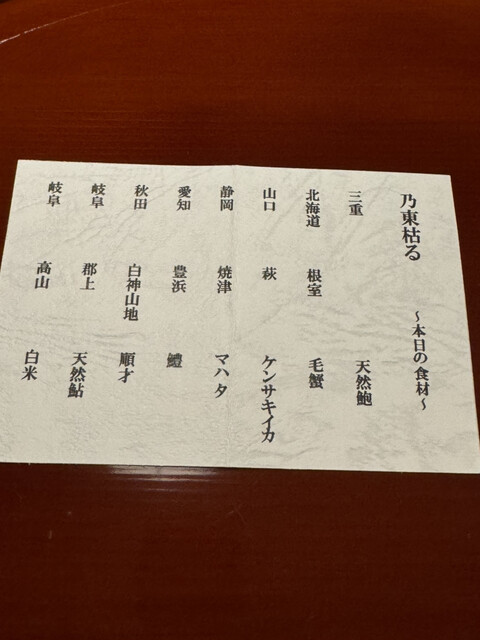 乃東枯る ～本日の食材～
三重 天然鮑
北海道 根室 毛蟹
山口 萩 ケンサキイカ
静岡 焼津 マハタ
愛知 豊浜 鱧
秋田 白神山地 順才
岐阜 郡上 天然鮎
岐阜 高山 白米